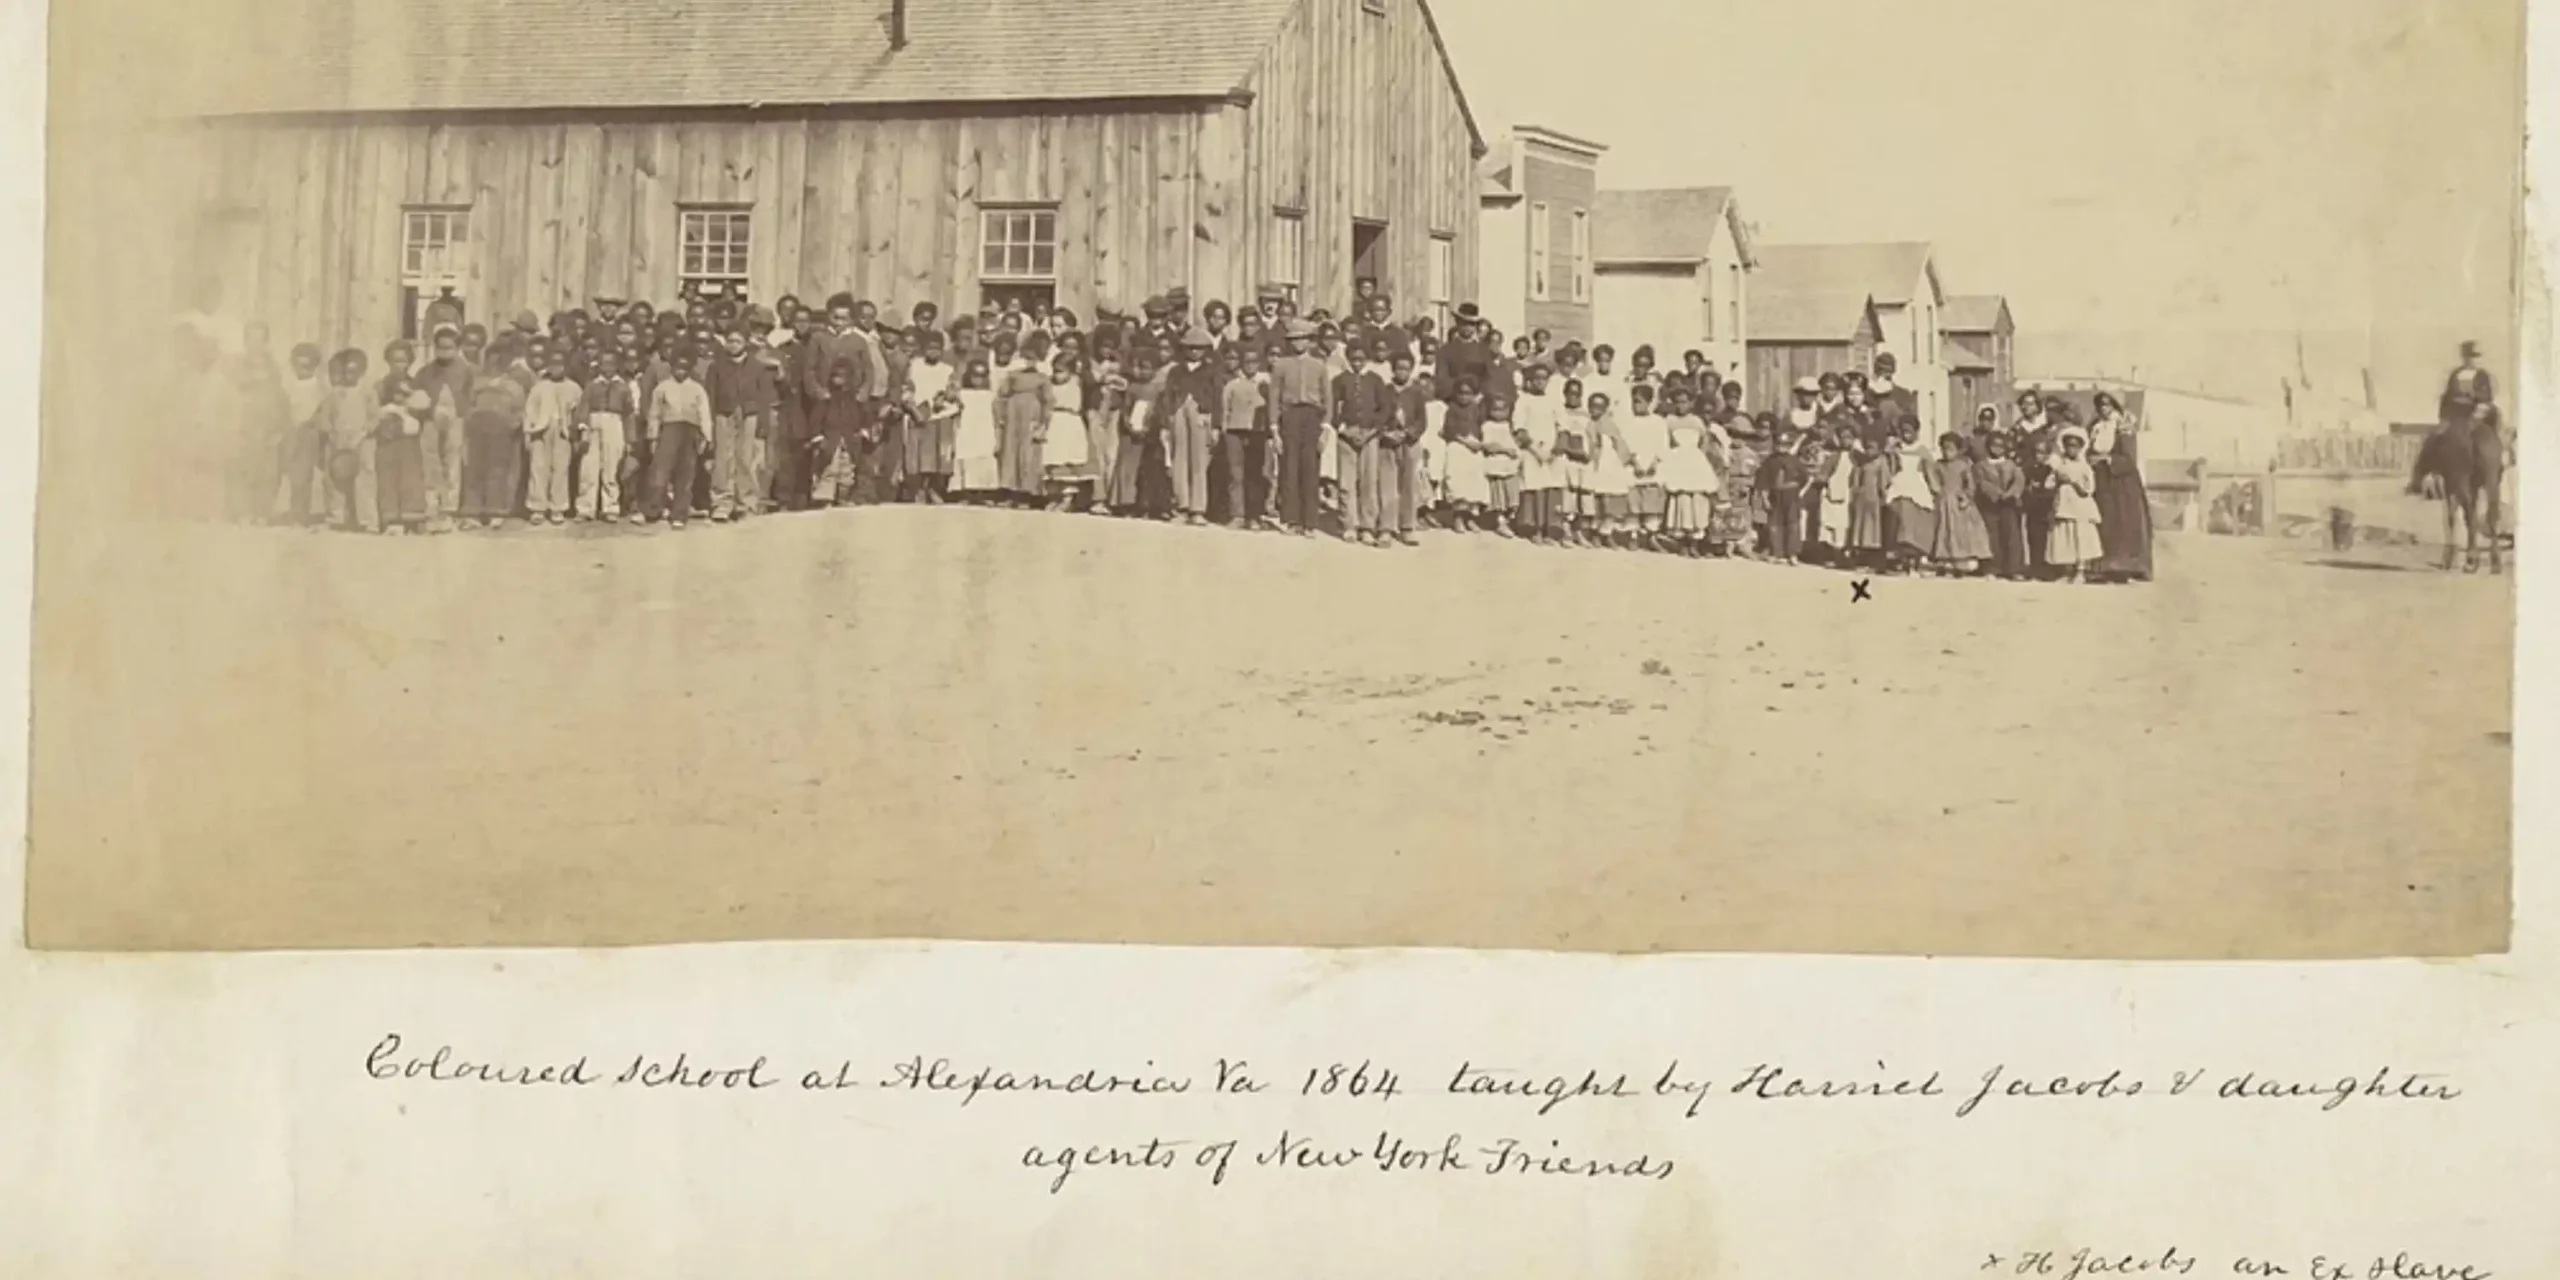 x
Coloured school at Alexandria Va 1864 taught by Harriet Jacobs & daughter
agents of New York Friends
x H Jacobs an Ex slave